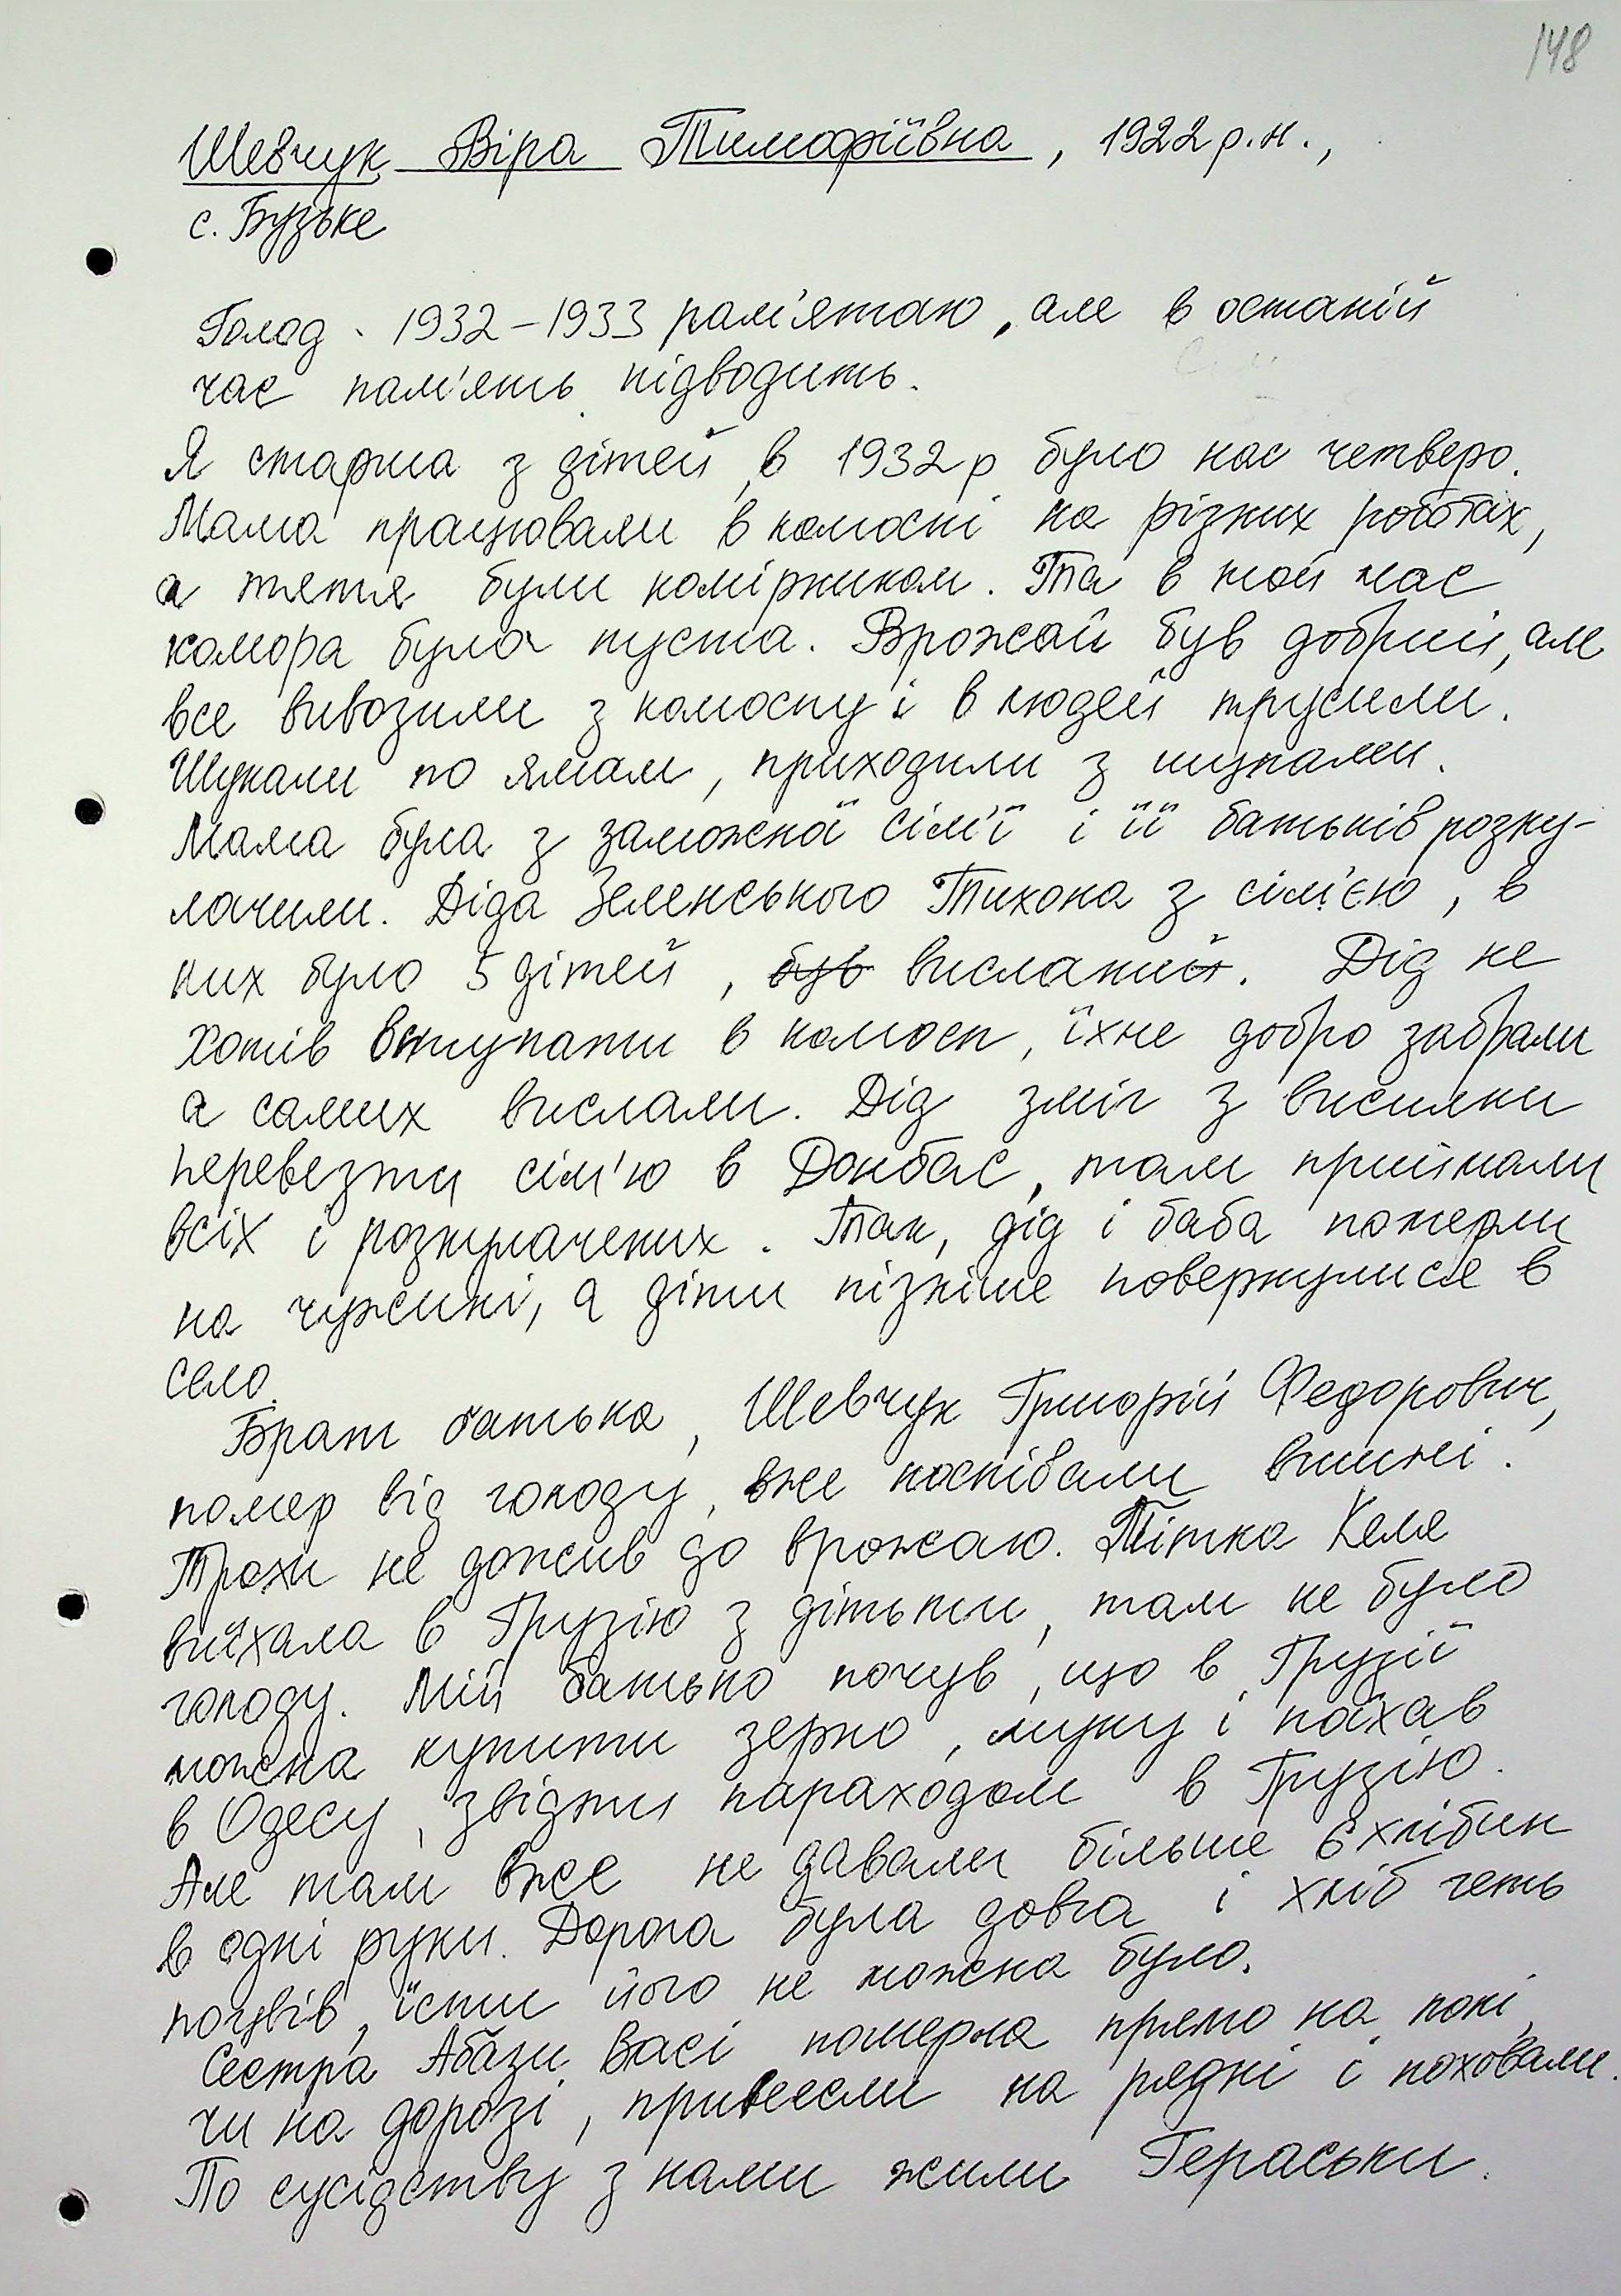 148
Шевчук Віра Тимофіївна, 1922 р.н.,
с. Бузьке
Голод 1932-1933 пам'ятаю, але в останій
час пам'ять підводить.
Я старша з дітей, в 1932р було нас четверо.
Мама працювали в колоспі на різних роботах,
а тятя були комірником. Та в той час
комора була пуста. Врожай був добрий, але
все вивозили з колоспу і в людей трусили.
Шукали по ямам, приходили з щупами.
Мама була з заможної сім'ї і її батьків розку-
лачили. Діда Зеленського Тихона з сім'єю, в
них було 5 дітей, був висланий. Дід не
хотів вступати в колосп, їхне добро забрали
а самих вислали. Дід зміг з висилки
перевезти сім'ю в Донбас, там приймали
всіх і розкулачених. Так, дід і баба померли
на чужині, а діти пізніше повернулися в
село.
Брат батька, Шевчук Григорій Федорович,
помер від голоду, вже поспівали вишні.
Трохи не дожив до врожаю. Тітка Келя
виїхала в Грузію з дітьми, там не було
голоду. Мій батько почув, що в Грузії
можна купити зерно, муку і поїхав
в Одесу, звідти параходом в Грузію.
Але там вже не давали більше 6 хлібин
в одні руки. Дорога була довга і хліб геть
поцвів, їсти його не можна було.
Сестра Абази Васі померла прямо на полі,
чи на дорозі, привезли на рядні і поховали.
По сусідству з нами жили Гераськи.